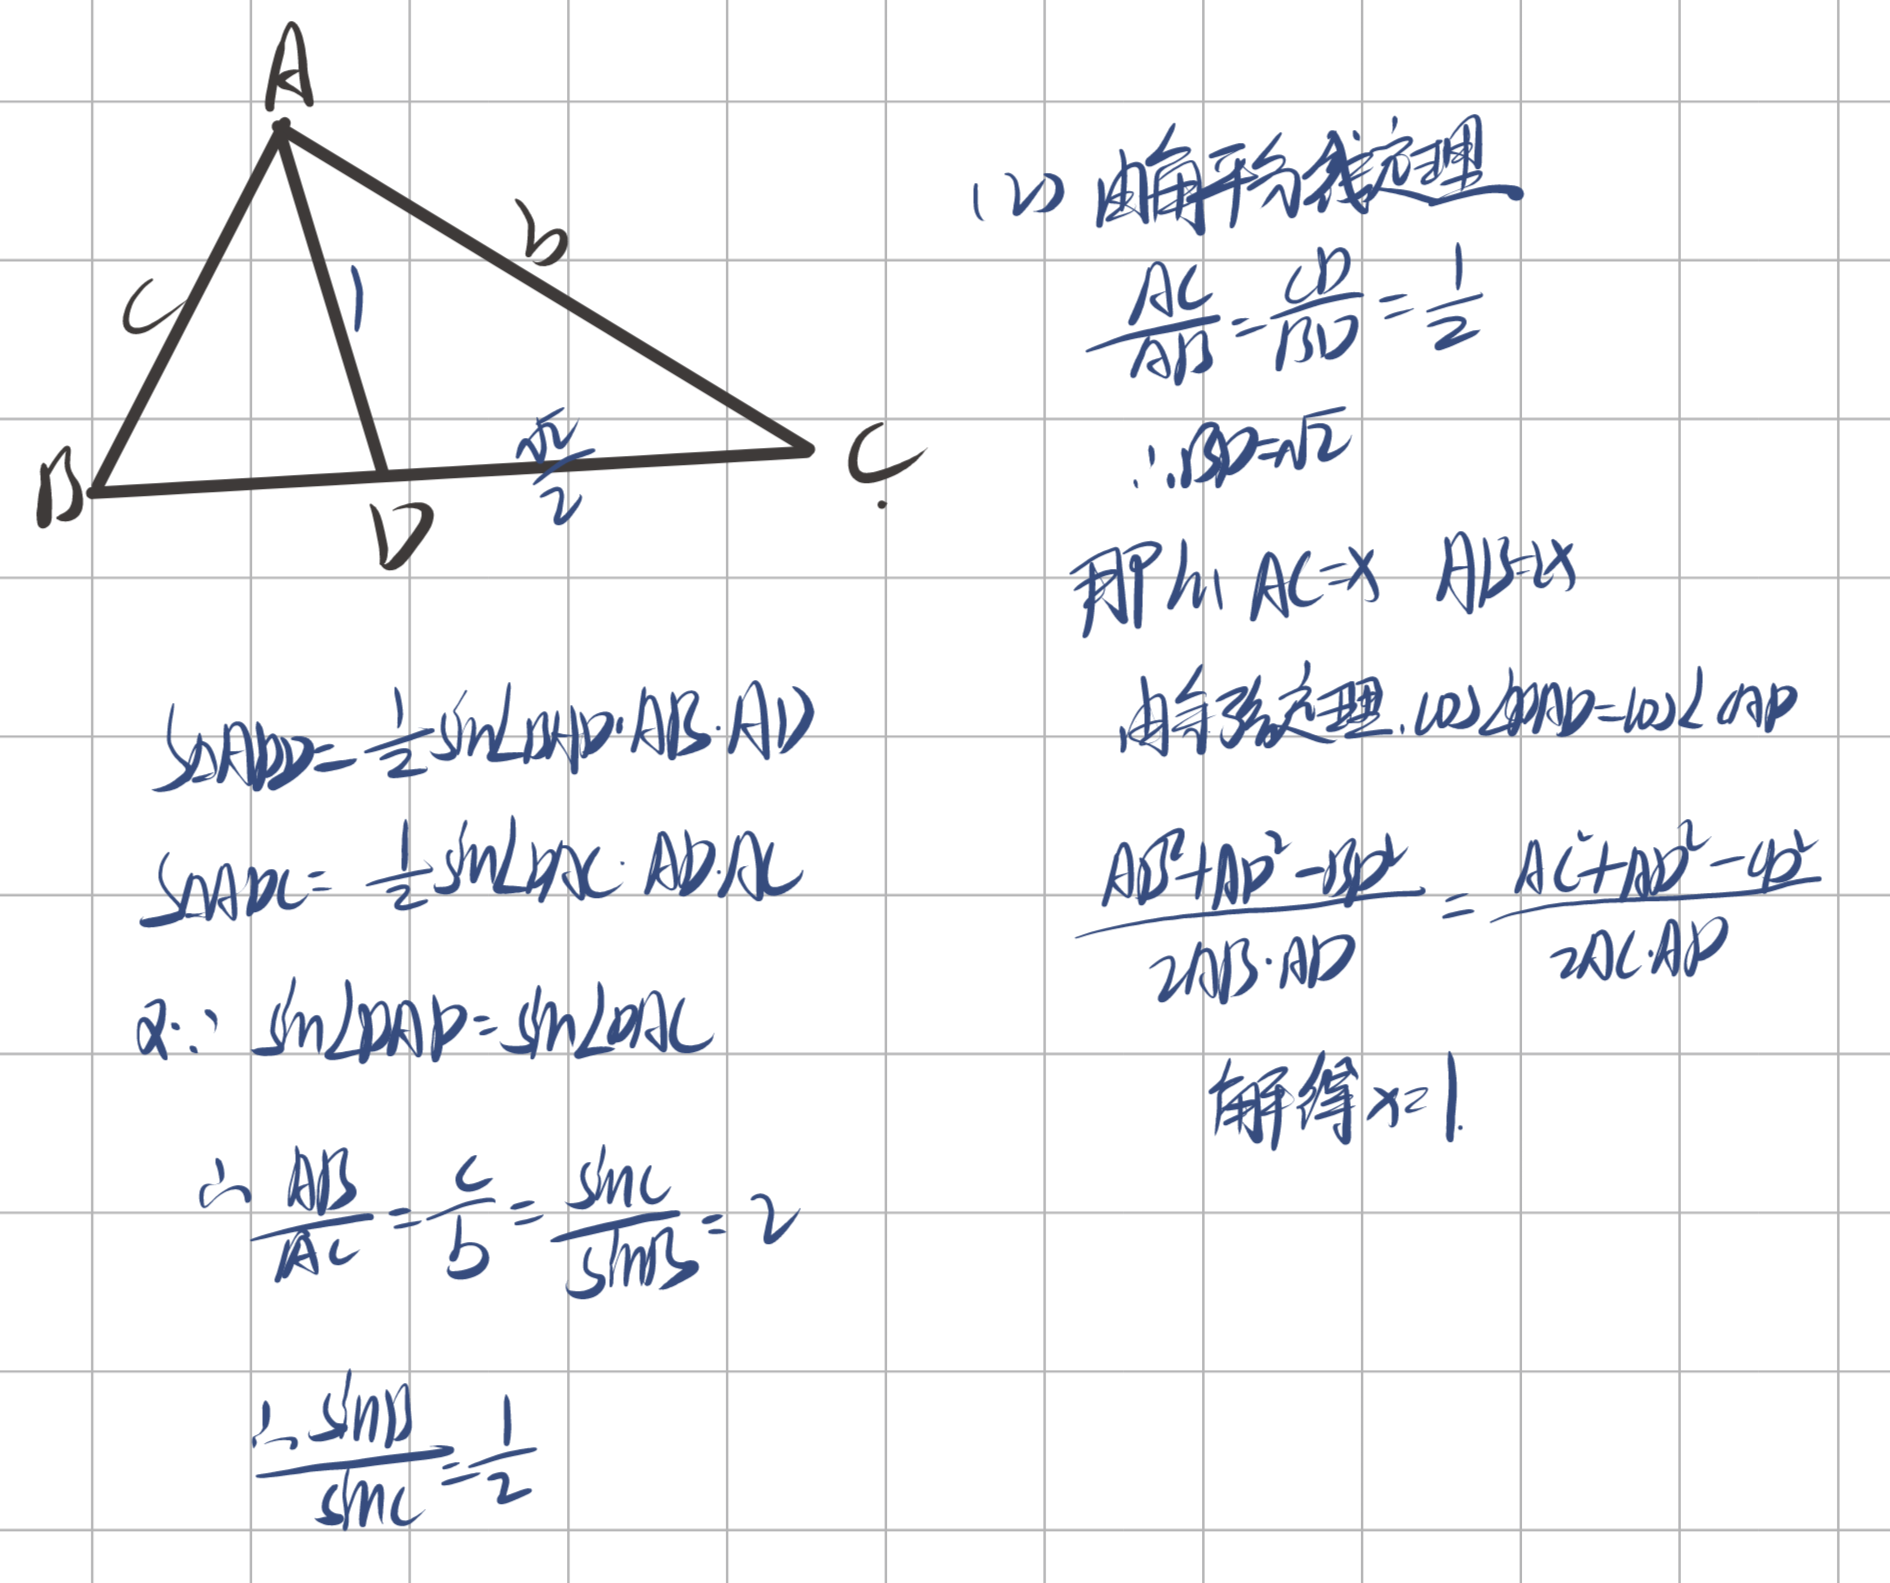 A
b
C
1
B
D
√2/2
C
S△ABD = 1/2 sin∠BAD·AB·AD
S△ADC = 1/2 sin∠DAC·AD·AC
又∵ sin∠BAD = sin∠DAC
∴ AB/AC = c/b = sinC/sinB = 2
∴ sinB/sinC = 1/2
(2) 由角平分线定理
AC/AB = CD/BD = 1/2
∴BD=√2
那么 AC=x AB=2x
由余弦定理. cos∠BAD=cos∠CAD
(AB²+AD²-BD²)/(2AB·AD) = (AC²+AD²-CD²)/(2AC·AD)
解得 x=1.